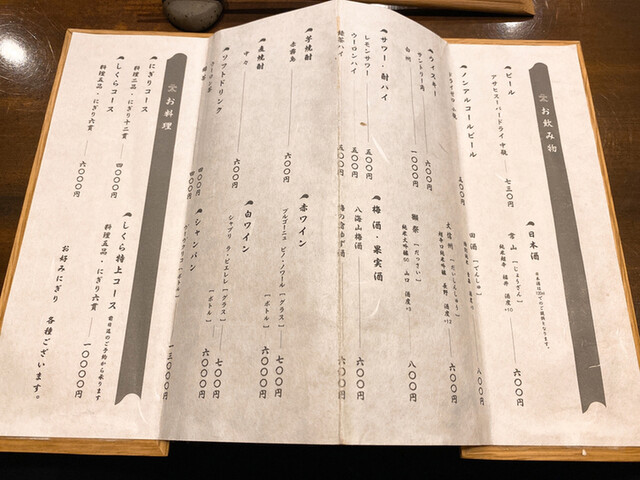 お飲み物
ビール
アサヒスーパードライ 中瓶 七三〇円
ノンアルコールビール
ドライゼロ 小瓶 五〇〇円
ウイスキー
サントリー角 六〇〇円
白州 一〇〇〇円
サワー・酎ハイ
レモンサワー 五〇〇円
ウーロンハイ 五〇〇円
緑茶ハイ 五〇〇円
日本酒
日本酒は120mlでのご提供となります。
常山 [じょうざん] 六〇〇円
純米超辛 福井 酒度+10
田酒 [でんしゅ] 八〇〇円
大信州 [だいしんしゅう] 六〇〇円
超辛口純米吟醸 長野 酒度
獺祭 [だっさい] 八〇〇円
純米大吟醸50 山口 酒度+3
梅酒・果実酒
八海山梅酒 六〇〇円
ゆず酒 六〇〇円
芋焼酎
赤霧島 六〇〇円
麦焼酎
中々 六〇〇円
ソフトドリンク
ウーロン茶 四〇〇円
緑茶 四〇〇円
赤ワイン
ブルゴーニュ ピノ・ノワール [グラス] 七〇〇円
[ボトル] 六〇〇〇円
白ワイン
シャブリ ラ・ピエレレ [グラス] 七〇〇円
[ボトル] 六〇〇〇円
シャンパン
[ボトル] 一三〇〇〇円
お料理
にぎりコース 四〇〇〇円
料理二品・にぎり十二貫
しくらコース 六〇〇〇円
料理五品・にぎり六貫
しくら特上コース 前日迄のご予約から承ります
料理五品・にぎり六貫 一〇〇〇〇円
お好みにぎり 各種ございます。